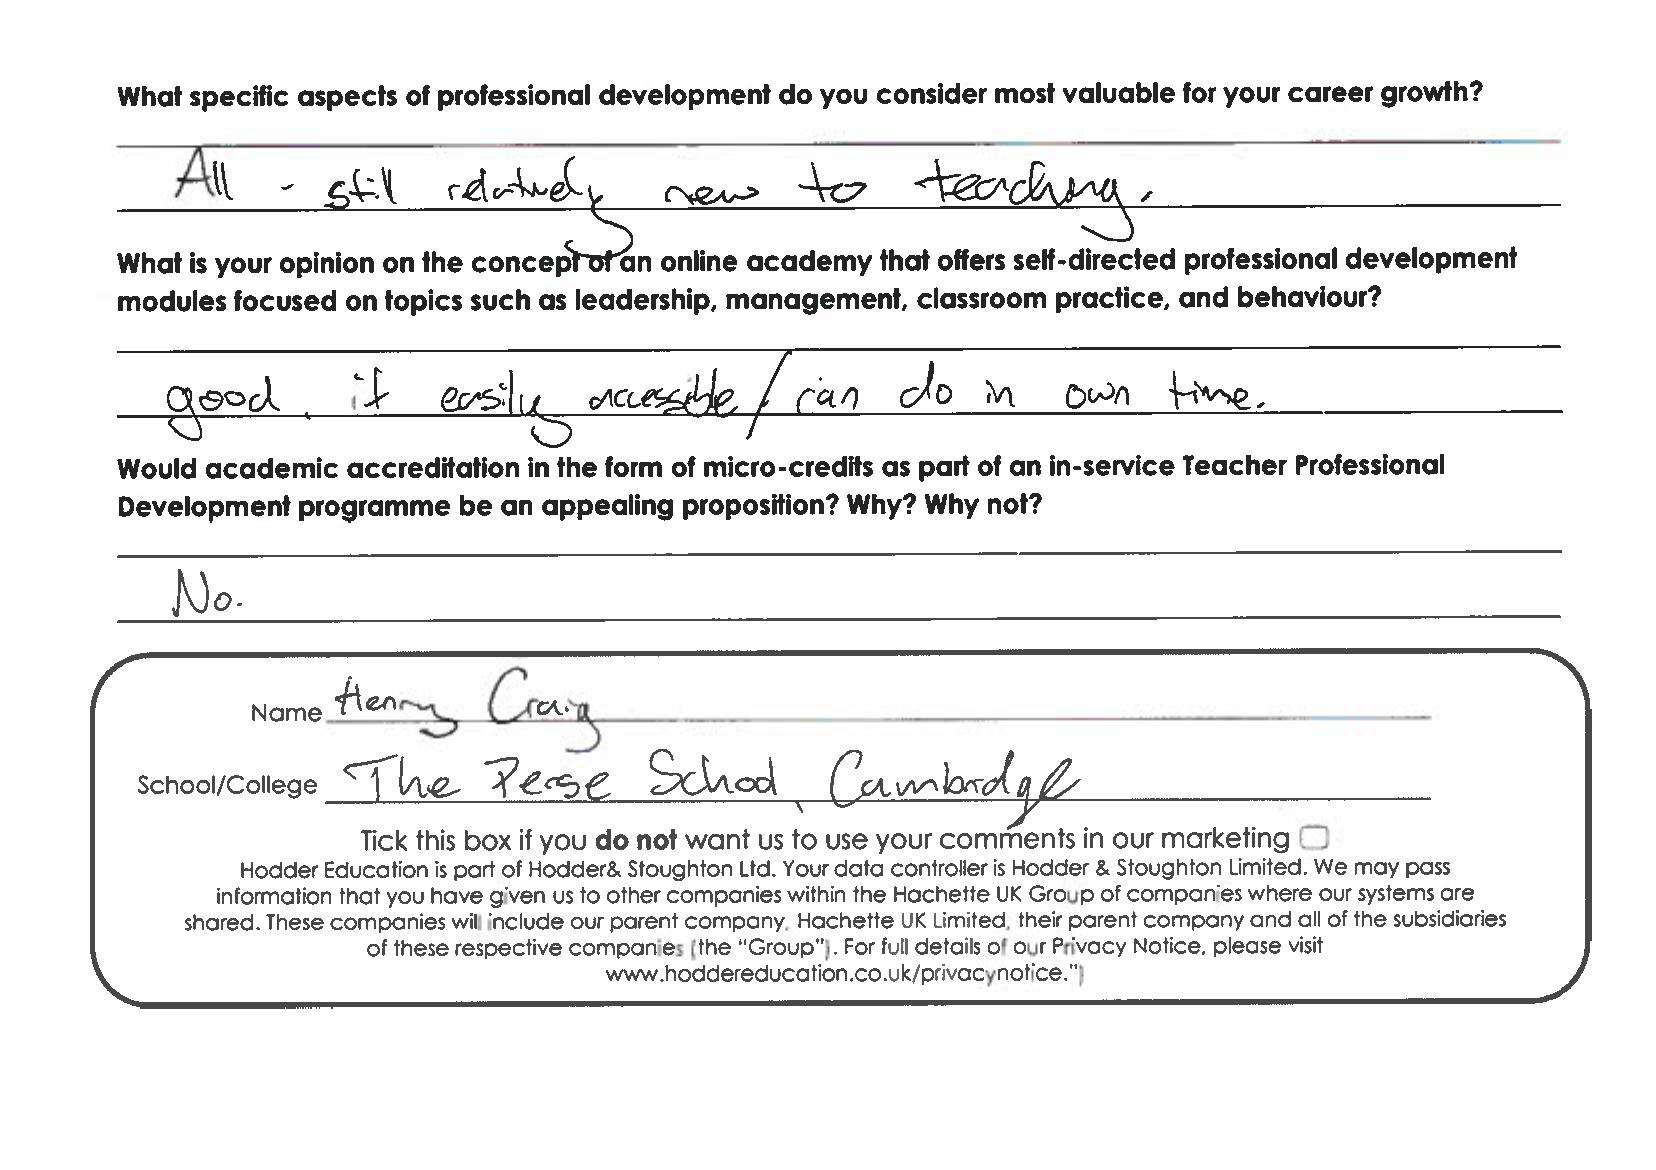 What specific aspects of professional development do you consider most valuable for your career growth?
All - still relatively new to teaching.
What is your opinion on the concept of an online academy that offers self-directed professional development
modules focused on topics such as leadership, management, classroom practice, and behaviour?
good, if easily accessible / can do in own time.
Would academic accreditation in the form of micro-credits as part of an in-service Teacher Professional
Development programme be an appealing proposition? Why? Why not?
No.
Name Henry Craig
School/College The Perse School, Cambridge
Tick this box if you do not want us to use your comments in our marketing
Hodder Education is part of Hodder& Stoughton Ltd. Your data controller is Hodder & Stoughton Limited. We may pass
information that you have given us to other companies within the Hachette UK Group of companies where our systems are
shared. These companies will include our parent company, Hachette UK Limited, their parent company and all of the subsidiaries
of these respective companies (the "Group"). For full details of our Privacy Notice, please visit
www.hoddereducation.co.uk/privacynotice.")